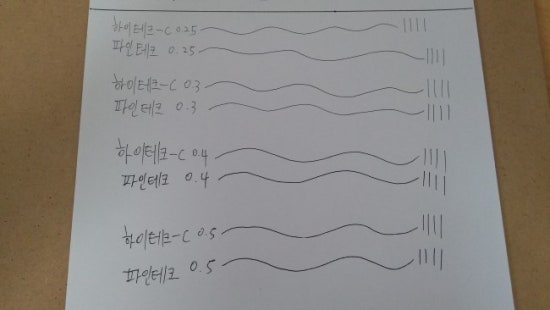 하이테크-C 0.25
파인테크 0.25
하이테크-C 0.3
파인테크 0.3
하이테크-C 0.4
파인테크 0.4
하이테크-C 0.5
파인테크 0.5